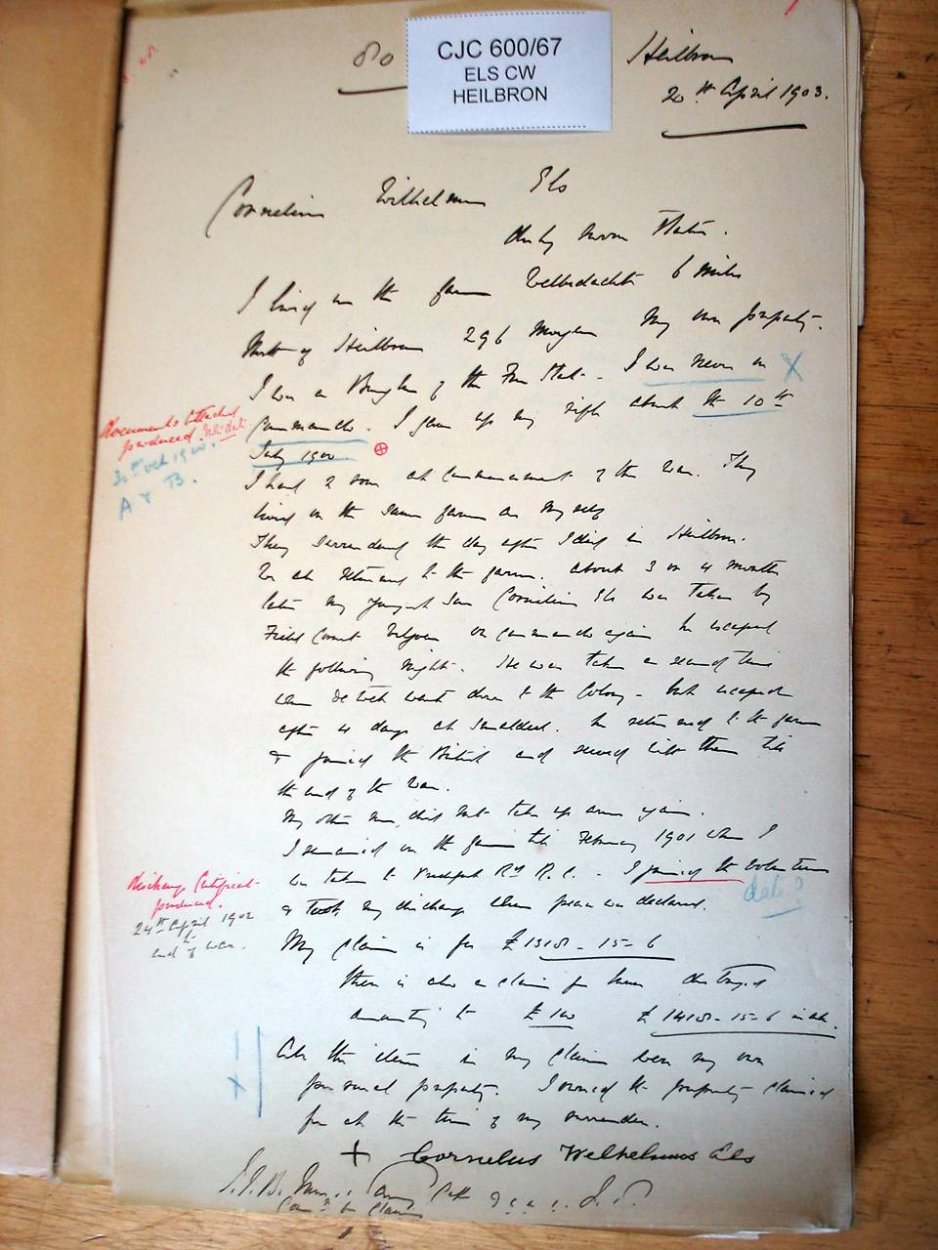 80
CJC 600/67
ELS CW
HEILBRON
Heilbron
20th April 1903.
Cornelius Wilhelmus Els
duly sworn States.
I lived on the farm 6 miles
of Heilbron 296 Morgen My own property.
I was a Burgher of the Free State. I was never on X
Commando. I gave up my rifle about the 10th
July 1900
Documents
produced.
30th Oct 1900.
A & B.
I had 2 sons at commencement of the war. They
lived on the same farm as myself
They surrendered the day after I did in Heilbron.
We all returned to the farm. About 3 or 4 months
later my youngest son Cornelius Els was taken by
Field Cornet on commando again he escaped
the following night. He was taken a second time
when De Wet went down to the Colony - but escaped
after 4 days at Smaldeel. He returned to the farm
& joined the British and served with them till
the end of the war.
My other son did not take up arms again.
I remained on the farm till February 1901 when I
was taken to Rd R.C. - I joined the Volunteers
date?
& took my discharge when peace was declared.
Discharge Certificate
produced.
24th April 1902
to
end of war.
My claim is for £1318-15-6
there is also a claim for house destroyed
amounting to £100 £1418-15-6 in all.
All the items in my claim were my own
personal property. I owned the property claimed
for at the time of my surrender.
+ Cornelus Welhelmus Els